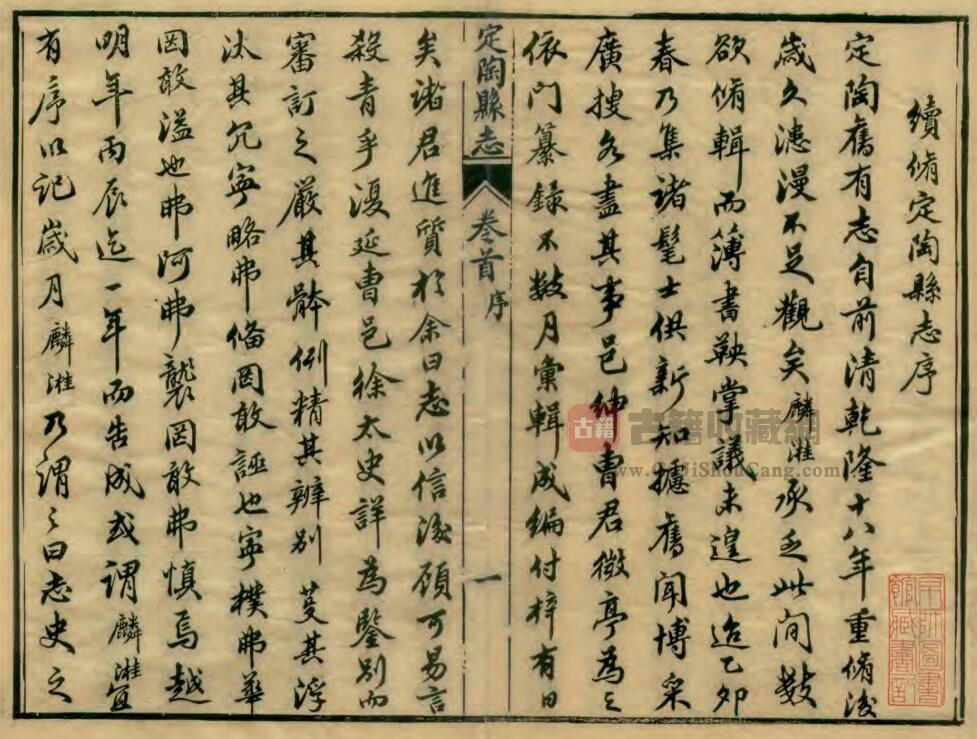 續脩定陶縣志序
定陶舊有志自前清乾隆十八年重脩後
歲久漶漫不足觀矣麟湴承乏此間數
欲脩輯而簿書鞅掌議未遑也迨乙卯
春乃集諸髦士供新知攄舊聞博采
廣搜各盡其事邑紳曹君微亭為之
依門纂錄不數月彙輯成編付梓有日
定陶縣志 卷首 序 一
矣諸君進質於余曰志以信後顧可易言
殺青乎復延曹邑徐太史詳為鑒別而
審訂之嚴其體例精其辨別芟其浮
汰其冗寧略弗備罔敢誣也寧樸弗華
罔敢溢也弗阿弗襲罔敢弗慎焉越
明年丙辰迄一年而告成或謂麟湴宜
有序以記歲月麟湴乃謂之曰志史之
古籍收藏網
www.GuJiShouCang.com
古籍